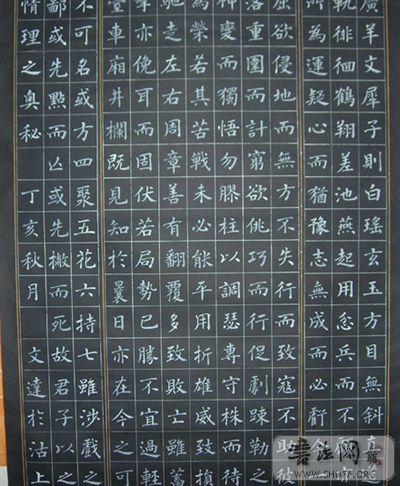 廣羊文犀子則白瑤玄玉方目無斜直
軌徘徊鶴翔差池燕起用忿兵而不顧
所為運疑心而猶豫志無成而必虧今
屈欲侵地而無方不失行而致寇不助彼
落重圍而計窮欲佻巧而行促劇踈勒之
神變而獨悟勿膠柱以調瑟專守株而待
為榮若其苦戰未必能平用折雄威致損
馳走左右周章善有翻覆多致敗亡雖蓄
擊亦俛耳而固伏若局勢已勝不宜過輕
臺車廂井欄既見知於曩日亦在今之可
不可名或方四聚五花六持七雖涉戲之
鄙或先點而亾或先撇而死故君子以之
情理之奧秘 丁亥秋月 文達於沽上
書法网
WWW.SHUFA.ORG